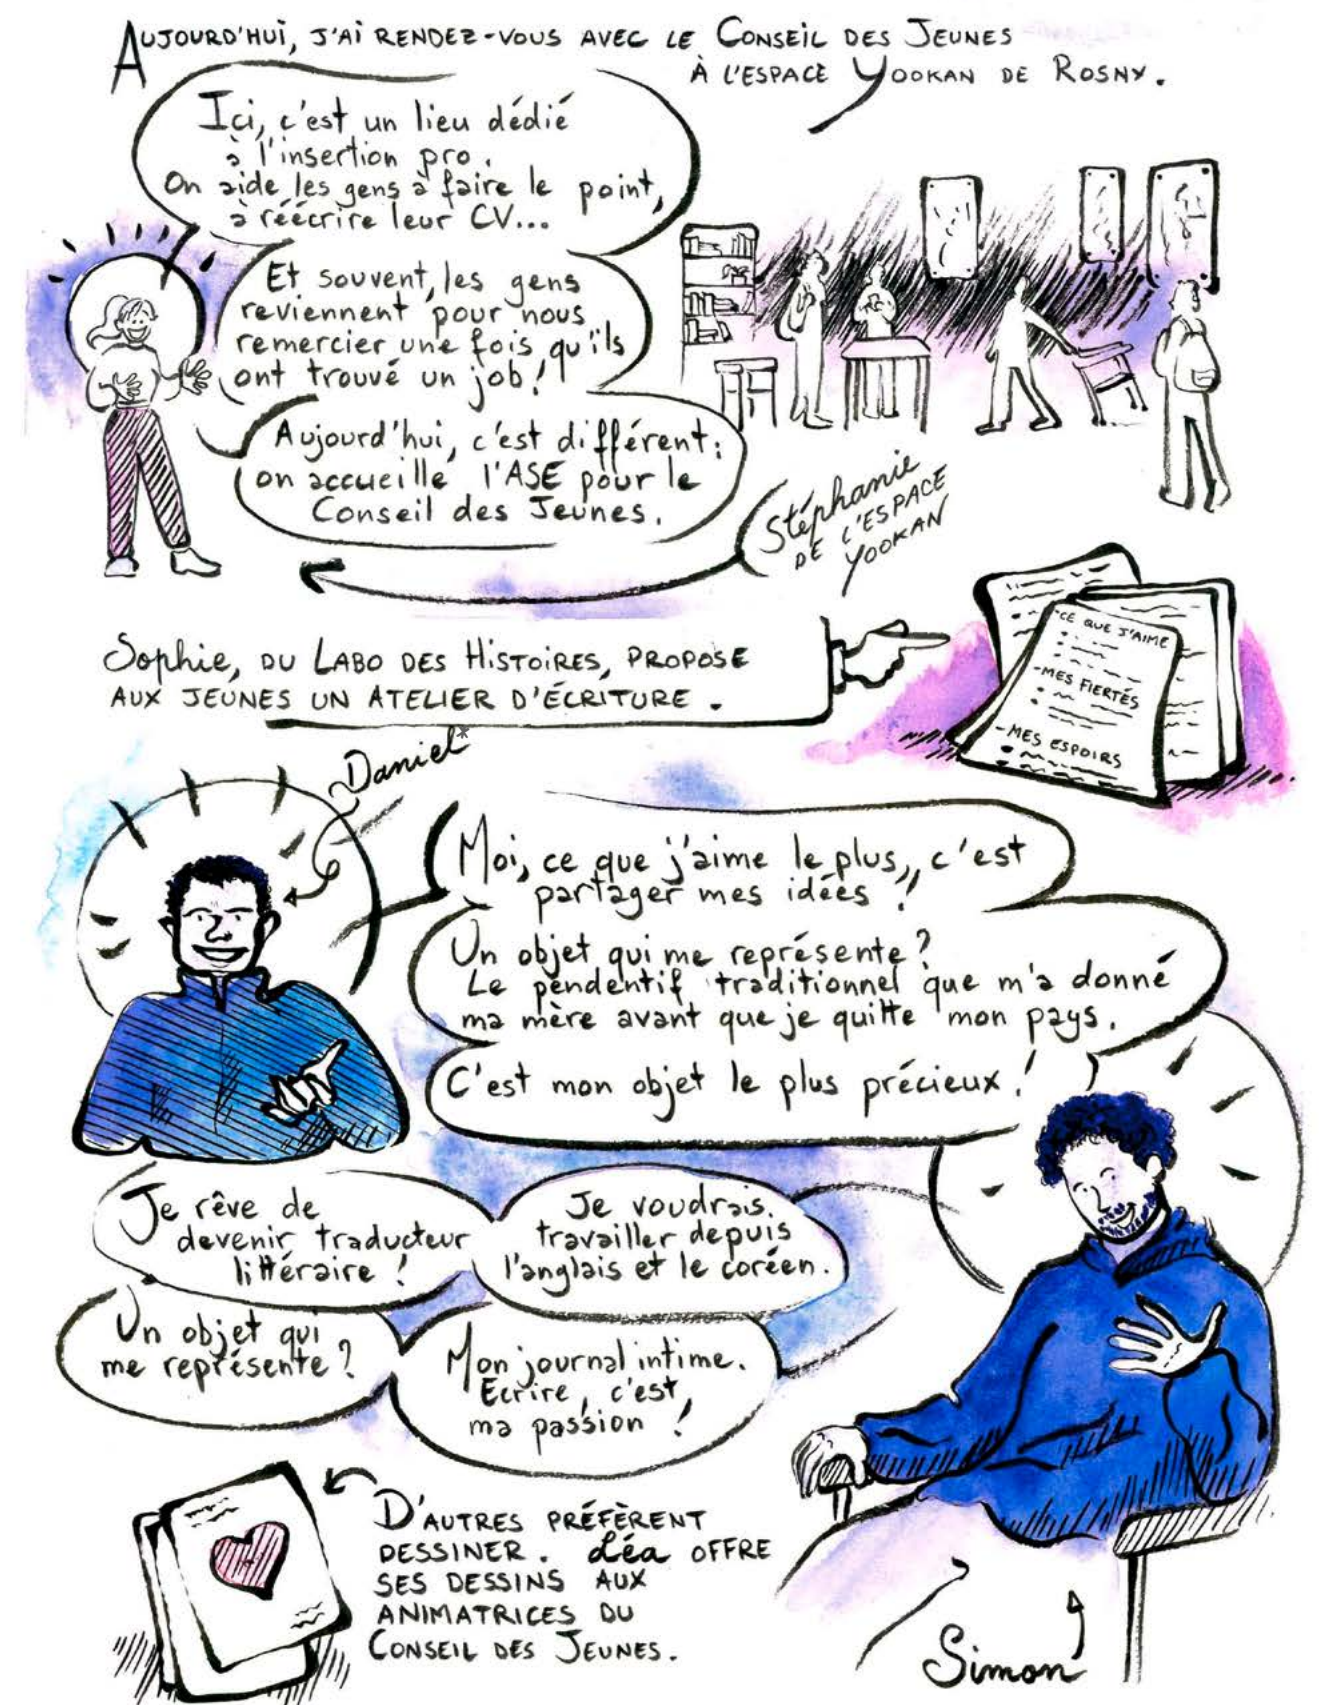 AUJOURD'HUI, J'AI RENDEZ-VOUS AVEC LE CONSEIL DES JEUNES
À L'ESPACE YOOKAN DE ROSNY.
Ici, c'est un lieu dédié
à l'insertion pro.
On aide les gens à faire le point,
à réécrire leur CV...
Et souvent, les gens
reviennent pour nous
remercier une fois qu'ils
ont trouvé un job!
Aujourd'hui, c'est différent:
on accueille l'ASE pour le
Conseil des Jeunes.
Stéphanie
DE L'ESPACE
YOOKAN
Sophie, DU LABO DES HISTOIRES, PROPOSE
AUX JEUNES UN ATELIER D'ÉCRITURE.
-CE QUE J'AIME
-MES FIERTÉS
-MES ESPOIRS
Daniel*
Moi, ce que j'aime le plus, c'est
partager mes idées !
Un objet qui me représente ?
Le pendentif traditionnel que m'a donné
ma mère avant que je quitte mon pays.
C'est mon objet le plus précieux !
Je rêve de
devenir traducteur
littéraire !
Je voudrais
travailler depuis
l'anglais et le coréen.
Un objet qui
me représente ?
Mon journal intime.
Ecrire, c'est
ma passion !
D'AUTRES PRÉFÈRENT
DESSINER. Léa OFFRE
SES DESSINS AUX
ANIMATRICES DU
CONSEIL DES JEUNES.
Simon